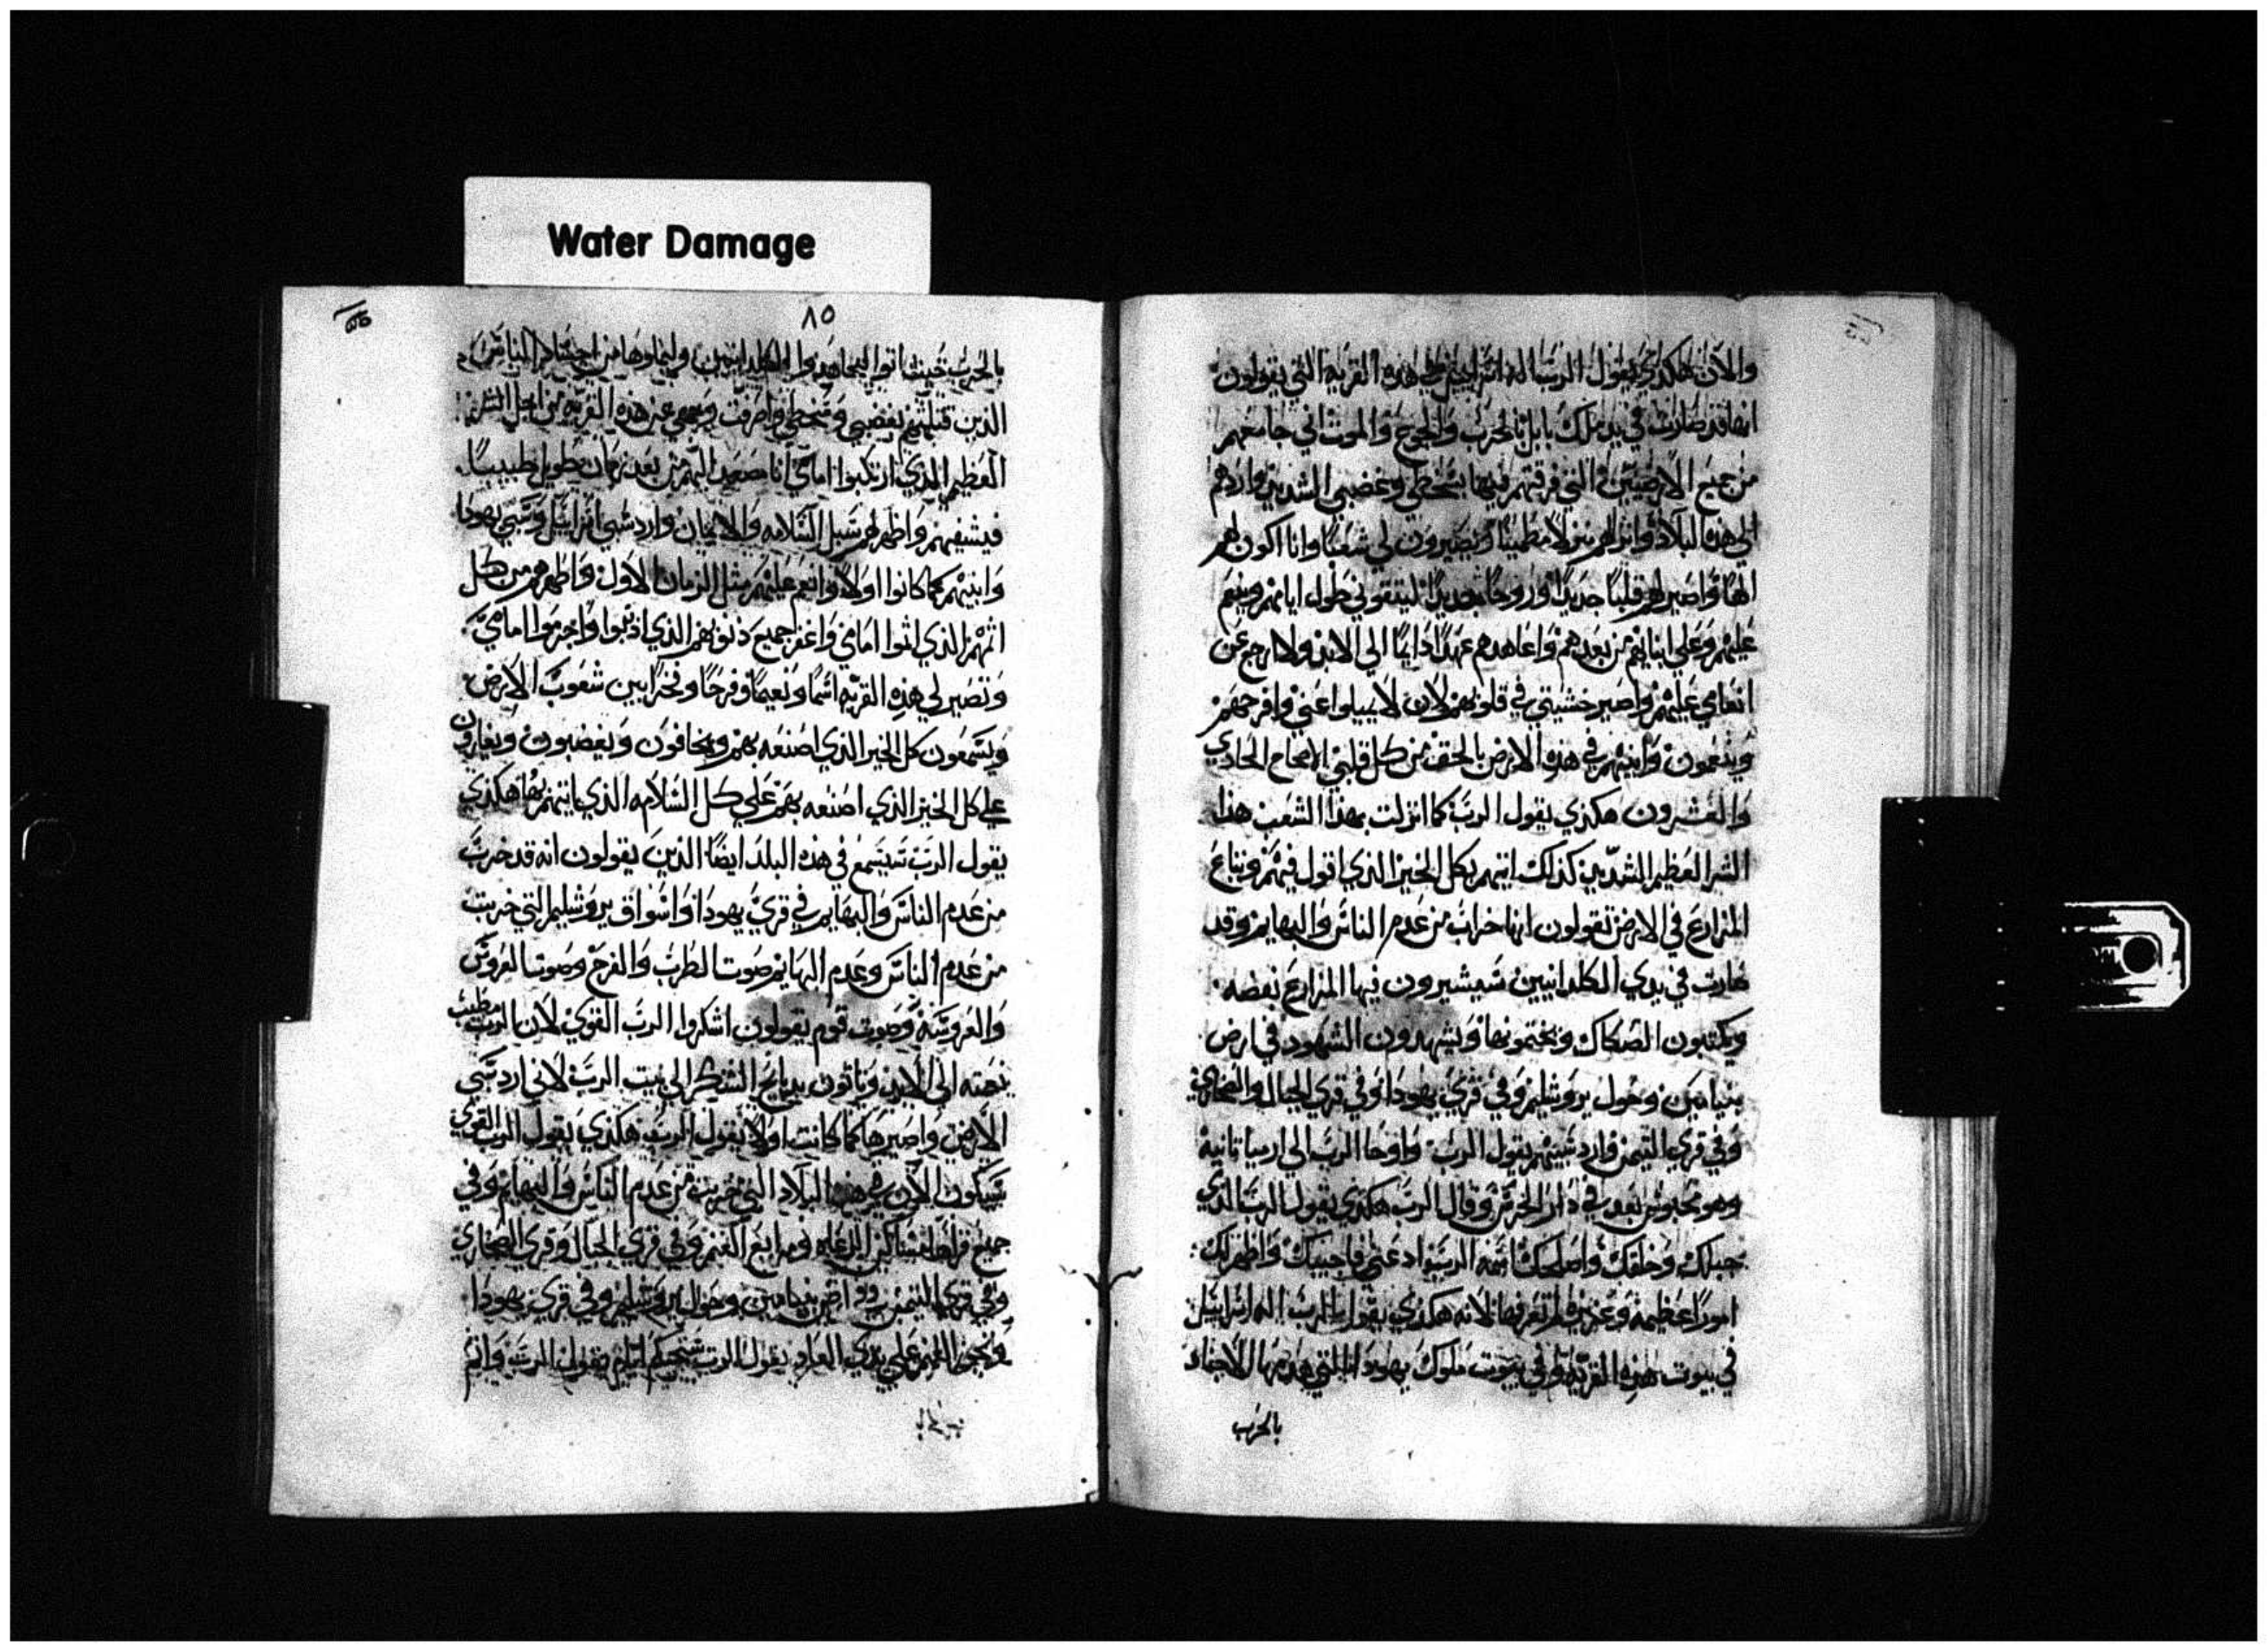 Water Damage
والان هكذي يقول الرب اله اسرائيل علي هذه القرية التي يقولون
انها قد صارت في يد ملك بابل بالحرب والجوع والموت اني جامعهم
من جميع الارضين التي فرقتهم فيها بسخطي وغضبي الشديد واردهم
الي هذه البلاد وانزلهم منزلا مطمينا ويصيرون لي شعبا وانا اكون لهم
الها واصير لهم قلبا جديدا وروحا جديدا ليتقوني طول ايامهم وينعم
عليهم وعلي ابنايهم من بعدهم واعاهدهم عهدا دايما الي الابد ولا ارجع عن
انعامي عليهم واصير خشيتي في قلوبهم لان لا يميلوا عني وافرحهم
وينعمون وابنيهم في هذه الارض بالحق من كل قلبي الاصحاح الحادي
والعشرون هكذي يقول الرب كما انزلت بهذا الشعب هذا
الشر العظيم الشديد كذلك اتيهم بكل الخير الذي اقول فيهم وتباع
المزارع في الارض تقولون انها خراب من عدم الناس والبهايم وقد
صارت في يدي الكلدانيين سيشيرون فيها المزارع بفضه
ويكتبون الصكاك ويختمونها ويشهدون الشهود في ارض
بنيامين وحول يروشليم وفي قري يهودا وفي قري الجبال والصحاري
وفي قري التيمن وارد سبيهم يقول الرب واوحا الرب الي ارميا ثانية
وهو محبوس بعد في دار الحرس وقال الرب هكذي يقول الرب الذي
جبلك وخلقك واصلحك اسمه الرب ادعني فاجيبك واظهر لك
امورا عظيمة وعزيزه لم تعرفها لانه هكذي يقول الرب اله اسرائيل
في بيوت هذه القرية وفي بيوت ملوك يهودا التي هدمها للاجناد
بالحرب
٨٥
بالحرب حيث اتوا ليجاهدوا الكلدانيين وليملوها من اجساد الناس
الذين قتلتهم بغضبي وسخطي واصرفت وجهي عن هذه القرية من اجل الشر
العظيم الذي ارتكبوا امامي انا مصعد اليهم من بعد زمان طويل طبيبا
فيشفيهم واظهر لهم سبل السلامه والايمان وارد سبي اسرائيل وسبي يهودا
وابنيهم كما كانوا اولا وانعم عليهم مثل الزمان الاول واطهرهم من كل
اثمهم الذي اثموا امامي واغفر جميع ذنوبهم الذي اذنبوا واجرموا امامي
وتصير لي هذه القرية اسما ونعيما وفرحا وفخرا بين شعوب الارض
ويسمعون كل الخير الذي اصنعه بهم ويخافون ويغضبون ويغارون
علي كل الخير الذي اصنعه بهم علي كل السلامه الذي اتيتهم بها هكذي
يقول الرب سيسمع في هذه البلد ايضا الذين يقولون انه قد خرب
من عدم الناس والبهايم في قري يهودا واسواق يروشليم التي خربت
من عدم الناس وعدم البهايم صوت الطرب والفرح وصوت العروس
والعروسة وصوت قوم يقولون اشكروا الرب القوي لان الرب مطيب
نعمته الي الابد وياتون بذبايح الشكر الي بيت الرب لاني ارد سبي
الارض واصيرها كما كانت اولا يقول الرب هكذي يقول الرب القوي
سيكون الان في هذه البلاد التي خربت من عدم الناس والبهايم وفي
جميع قراها مساكن الرعاه ومرابع الغنم وفي قري الجبال وقري الصحاري
وفي قري التيمن وفي ارض بنيامين وحول يروشليم وفي قري يهودا
وتجوز الغنم علي يدي العاد يقول الرب ستجيكم ايام يقول الرب واتم